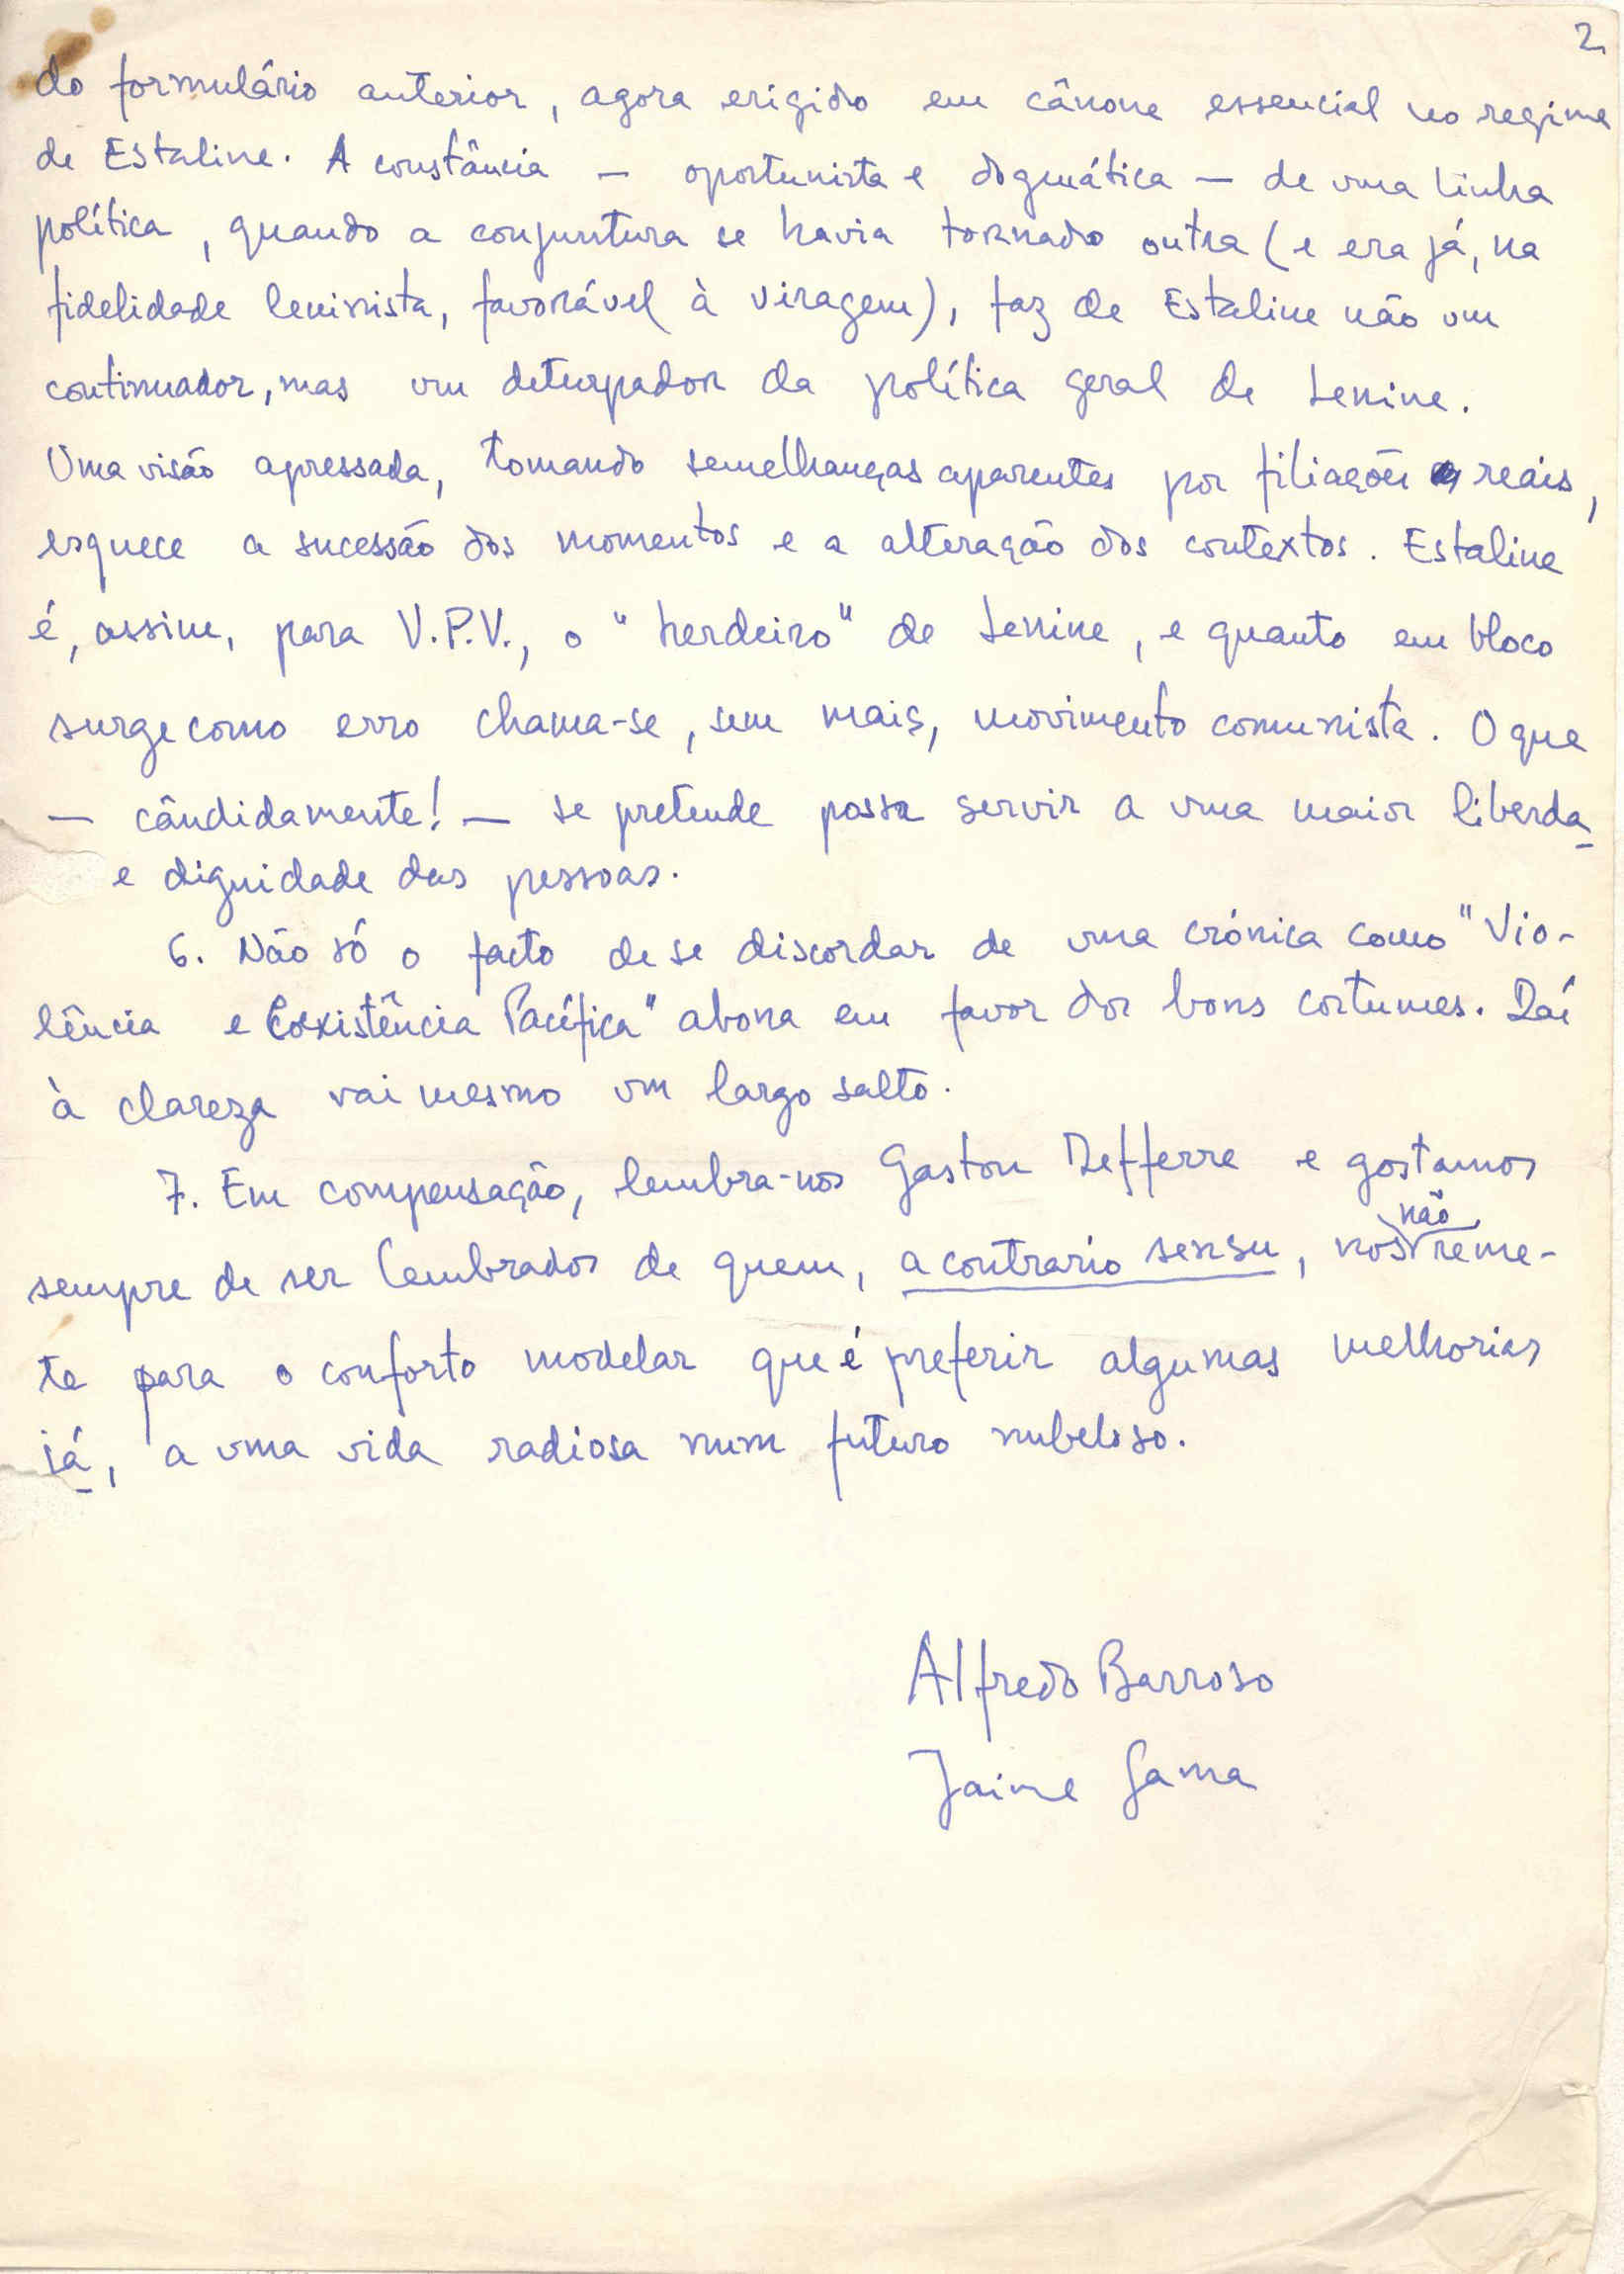 2
do formulário anterior, agora erigido em cânone essencial no regime
de Estaline. A constância — oportunista e dogmática — de uma linha
política, quando a conjuntura se havia tornado outra (e era já, na
fidelidade leninista, favorável à viragem), faz de Estaline não um
continuador, mas um deturpador da política geral de Lenine.
Uma visão apressada, tomando semelhanças aparentes por filiações reais,
esquece a sucessão dos momentos e a alteração dos contextos. Estaline
é, assim, para V.P.V., o "herdeiro" de Lenine, e quanto em bloco
surge como erro chama-se, sem mais, movimento comunista. O que
— cândidamente! — se pretende possa servir a uma maior liberda
e dignidade das pessoas.
6. Não só o facto de se discordar de uma crónica como "Vio-
lência e Coexistência Pacífica" abona em favor dos bons costumes. Daí
à clareza vai mesmo um largo salto.
7. Em compensação, lembra-nos Gaston Defferre e gostamos
sempre de ser lembrados de quem, a contrario sensu, nos não reme-
te para o conforto modelar que é preferir algumas melhorias
já, a uma vida radiosa num futuro nubeloso.
Alfredo Barroso
Jaime Gama